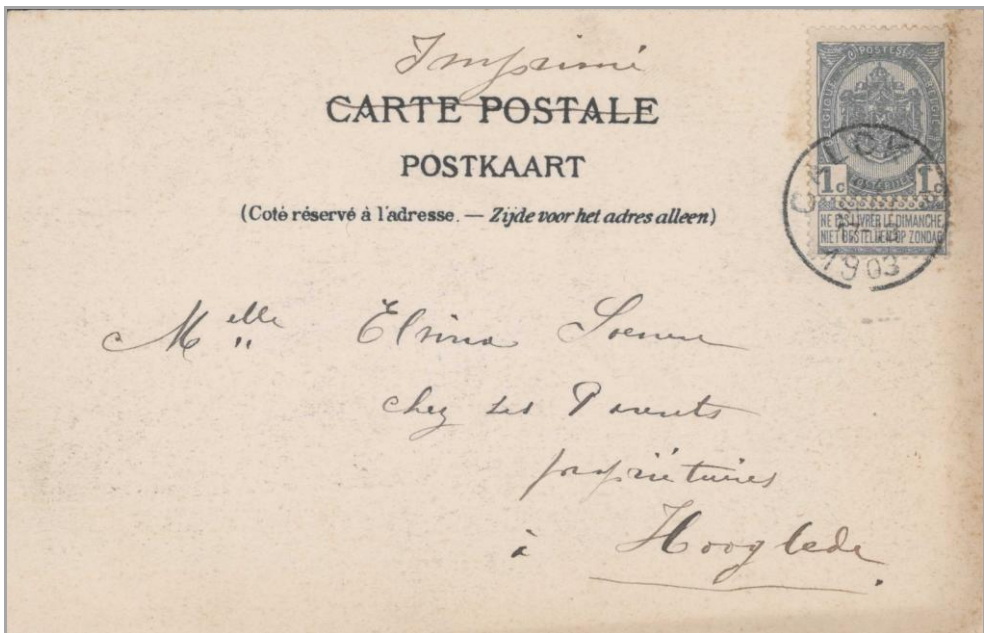 Imprimé
CARTE POSTALE
POSTKAART
(Coté réservé à l'adresse. — Zijde voor het adres alleen)
POSTES
BELGIQUE BELGIË
1c 1c
NE PAS LIVRER LE DIMANCHE
NIET BESTELLEN OP ZONDAG
1903
Melle Elvina
chez ses Parents
propriétaires
à Hooglede.